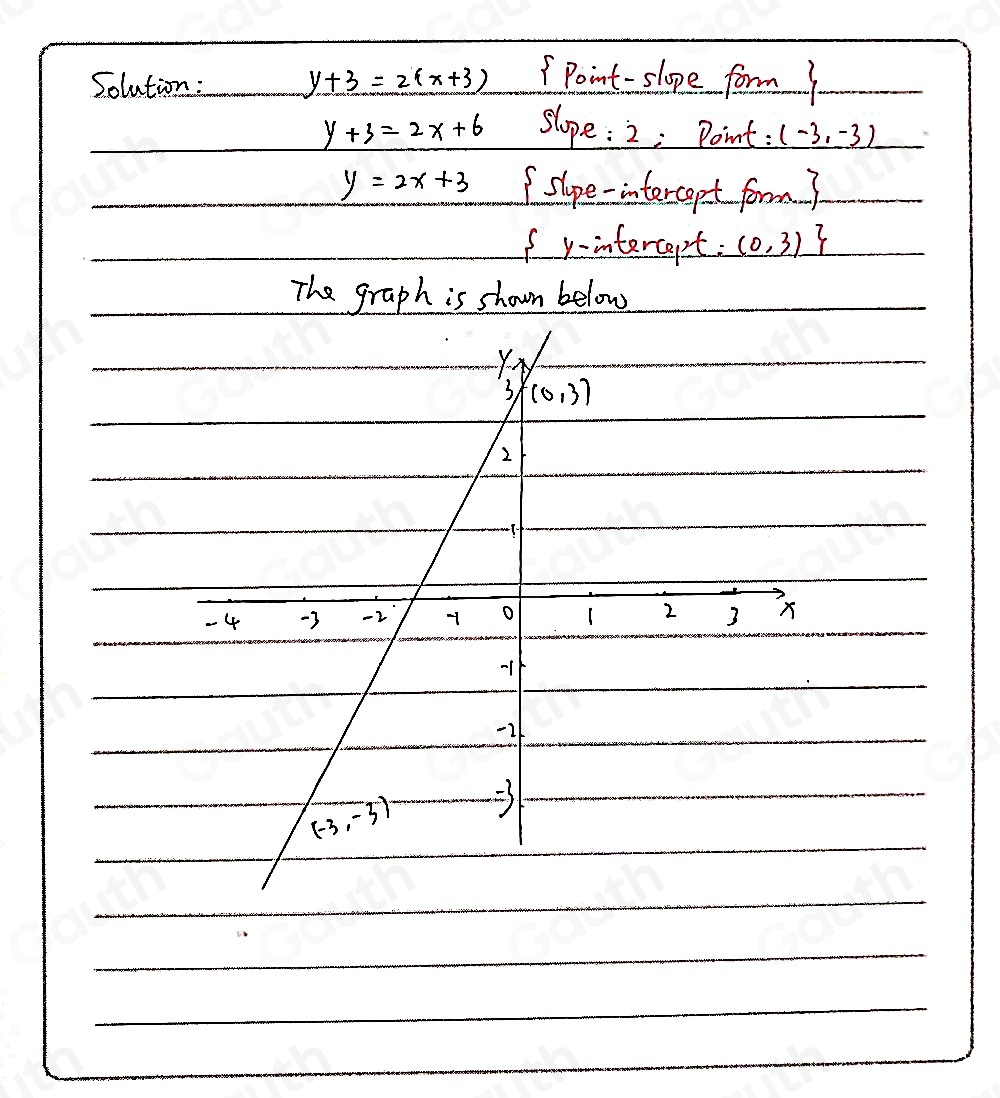 Solution: y+3 = 2(x+3) { Point-slope form }
y+3 = 2x+6 Slope: 2; Point: (-3, -3)
y = 2x+3 { slope-intercept form }
{ y-intercept: (0, 3) }
The graph is shown below
y
3 (0,3)
2
1
-4 -3 -2 -1 0 1 2 3 x
-1
-2
-3
(-3, -3)
Gauth